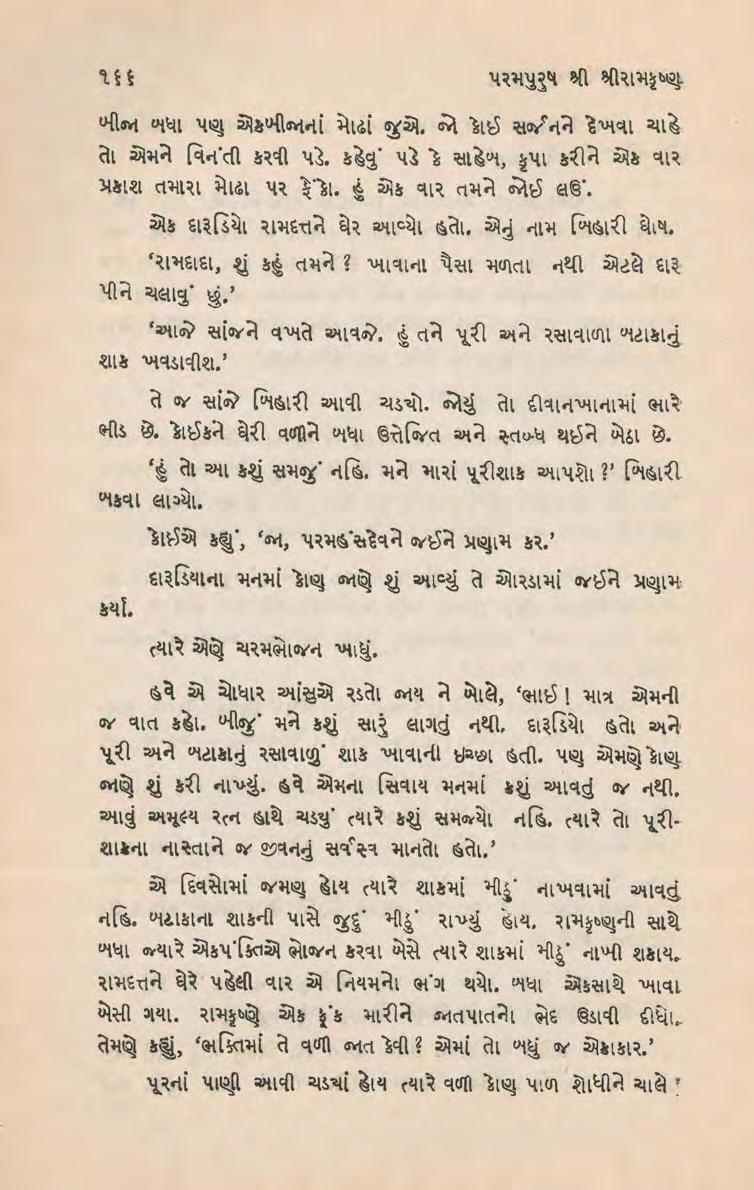 ૧૬૬ પરમપુરુષ શ્રી શ્રીરામકૃષ્ણ
બીજા બધા પણ એકબીજાનાં મોઢાં જુએ. જો કોઈ સર્જનને દેખવા ચાહે
તો એમને વિનંતી કરવી પડે. કહેવું પડે કે સાહેબ, કૃપા કરીને એક વાર
પ્રકાશ તમારા મોઢા પર ફેંકો. હું એક વાર તમને જોઈ લઉં.
એક દારૂડિયો રામદત્તને ઘેર આવ્યો હતો. એનું નામ બિહારી ઘોષ.
‘રામદાદા, શું કહું તમને ? ખાવાના પૈસા મળતા નથી એટલે દારૂ
પીને ચલાવું છું.’
‘આજે સાંજને વખતે આવજે. હું તને પૂરી અને રસાવાળા બટાકાનું
શાક ખવડાવીશ.’
તે જ સાંજે બિહારી આવી ચડ્યો. જોયું તો દીવાનખાનામાં ભારે
ભીડ છે. કોઈકને ઘેરી વળીને બધા ઉત્તેજિત અને સ્તબ્ધ થઈને બેઠા છે.
‘હું તો આ કશું સમજું નહિ. મને મારાં પૂરીશાક આપશો ?’ બિહારી
બકવા લાગ્યો.
કોઈએ કહ્યું, ‘જા, પરમહંસદેવને જઈને પ્રણામ કર.’
દારૂડિયાના મનમાં કોણ જાણે શું આવ્યું તે ઓરડામાં જઈને પ્રણામ
કર્યા.
ત્યારે એણે ચરમભોજન ખાધું.
હવે એ ચોધાર આંસુએ રડતો જાય ને બોલે, ‘ભાઈ ! માત્ર એમની
જ વાત કહો. બીજું મને કશું સારું લાગતું નથી. દારૂડિયો હતો અને
પૂરી અને બટાકાનું રસાવાળું શાક ખાવાની ઇચ્છા હતી. પણ એમણે કોણ
જાણે શું કરી નાખ્યું. હવે એમના સિવાય મનમાં કશું આવતું જ નથી.
આવું અમૂલ્ય રત્ન હાથે ચડ્યું ત્યારે કશું સમજ્યો નહિ. ત્યારે તો પૂરી-
શાકના નાસ્તાને જ જીવનનું સર્વસ્વ માનતો હતો.’
એ દિવસોમાં જમણ હોય ત્યારે શાકમાં મીઠું નાખવામાં આવતું
નહિ. બટાકાના શાકની પાસે જુદું મીઠું રાખ્યું હોય. રામકૃષ્ણની સાથે
બધા જ્યારે એકપંક્તિએ ભોજન કરવા બેસે ત્યારે શાકમાં મીઠું નાખી શકાય.
રામદત્તને ઘેરે પહેલી વાર એ નિયમનો ભંગ થયો. બધા એકસાથે ખાવા
બેસી ગયા. રામકૃષ્ણે એક ફૂંક મારીને જાતપાતનો ભેદ ઉડાવી દીધો.
તેમણે કહ્યું, ‘ભક્તિમાં તે વળી જાત કેવી ? એમાં તો બધું જ એકાકાર.’
પૂરનાં પાણી આવી ચડ્યાં હોય ત્યારે વળી કોણ પાળ શોધીને ચાલે ?